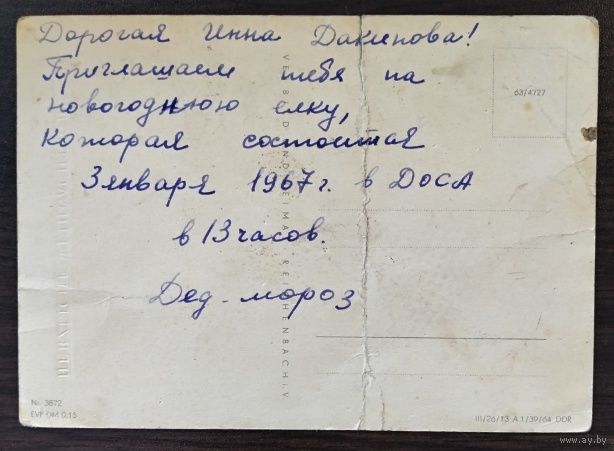 Дорогая Инна Дакинова!
Приглашаем тебя на
новогоднюю елку,
которая состоится
3 января 1967 г. в ДОСА
в 13 часов.
Дед-мороз
63/4727
Nr. 3872
EVP DM 0.15
III/26/13 A 1/39/64 DDR
www.ay.by